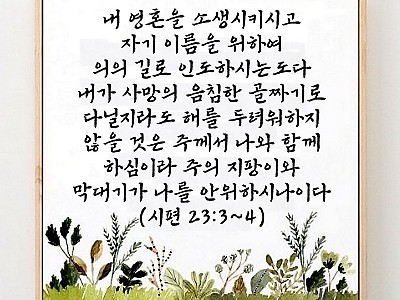 내 영혼을 소생시키시고
자기 이름을 위하여
의의 길로 인도하시는도다
내가 사망의 음침한 골짜기로
다닐지라도 해를 두려워하지
않을 것은 주께서 나와 함께
하심이라 주의 지팡이와
막대기가 나를 안위하시나이다
(시편 23:3~4)